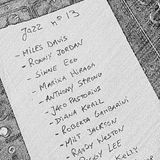 JAZZ nº 13
- MILES DAVIS
- RONNY JORDAN
- SINNE EEG
- MARIKA HUGHES
- ANTHONY STRONG
- JAKO PASTORIUS
- DIANA KRALL
- ROBERTA GAMBARINI
- MILT JACKSON
- RANDY WESTON
LEE